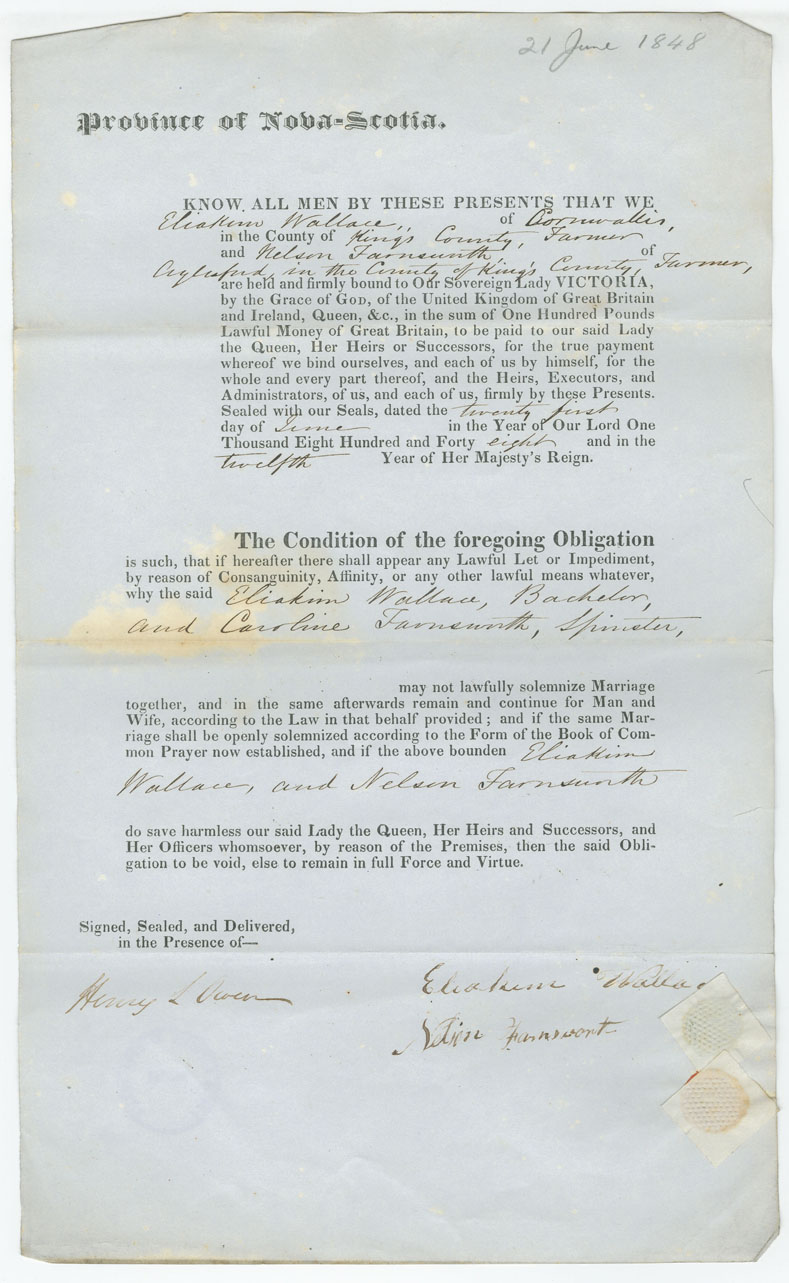 21 June 1848
Province of Nova-Scotia.
KNOW ALL MEN BY THESE PRESENTS THAT WE
Eliakim Wallace, of Cornwallis,
in the County of King's County, Farmer
and Nelson Farnsworth, of
Aylesford, in the County of King's County, Farmer,
are held and firmly bound to Our Sovereign Lady VICTORIA,
by the Grace of GOD, of the United Kingdom of Great Britain
and Ireland, Queen, &c., in the sum of One Hundred Pounds
Lawful Money of Great Britain, to be paid to our said Lady
the Queen, Her Heirs or Successors, for the true payment
whereof we bind ourselves, and each of us by himself, for the
whole and every part thereof, and the Heirs, Executors, and
Administrators, of us, and each of us, firmly by these Presents.
Sealed with our Seals, dated the twenty first
day of June in the Year of Our Lord One
Thousand Eight Hundred and Forty eight and in the
twelfth Year of Her Majesty's Reign.
The Condition of the foregoing Obligation
is such, that if hereafter there shall appear any Lawful Let or Impediment,
by reason of Consanguinity, Affinity, or any other lawful means whatever,
why the said Eliakim Wallace, Bachelor,
and Caroline Farnsworth, Spinster,
may not lawfully solemnize Marriage
together, and in the same afterwards remain and continue for Man and
Wife, according to the Law in that behalf provided ; and if the same Mar-
riage shall be openly solemnized according to the Form of the Book of Com-
mon Prayer now established, and if the above bounden Eliakim
Wallace, and Nelson Farnsworth
do save harmless our said Lady the Queen, Her Heirs and Successors, and
Her Officers whomsoever, by reason of the Premises, then the said Obli-
gation to be void, else to remain in full Force and Virtue.
Signed, Sealed, and Delivered,
in the Presence of—
Henry L Owen
Eliakim Wallac
Nelson Farnsworth